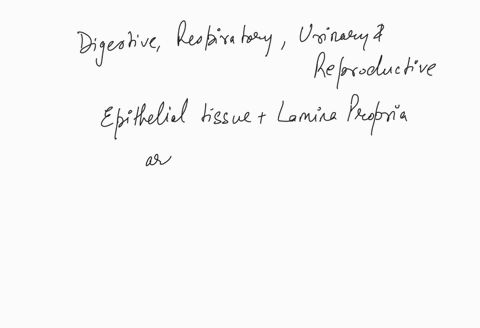 Digestive, Respiratory, Urinary &
Reproductive
Epithelial tissue + Lamina Propria
ar